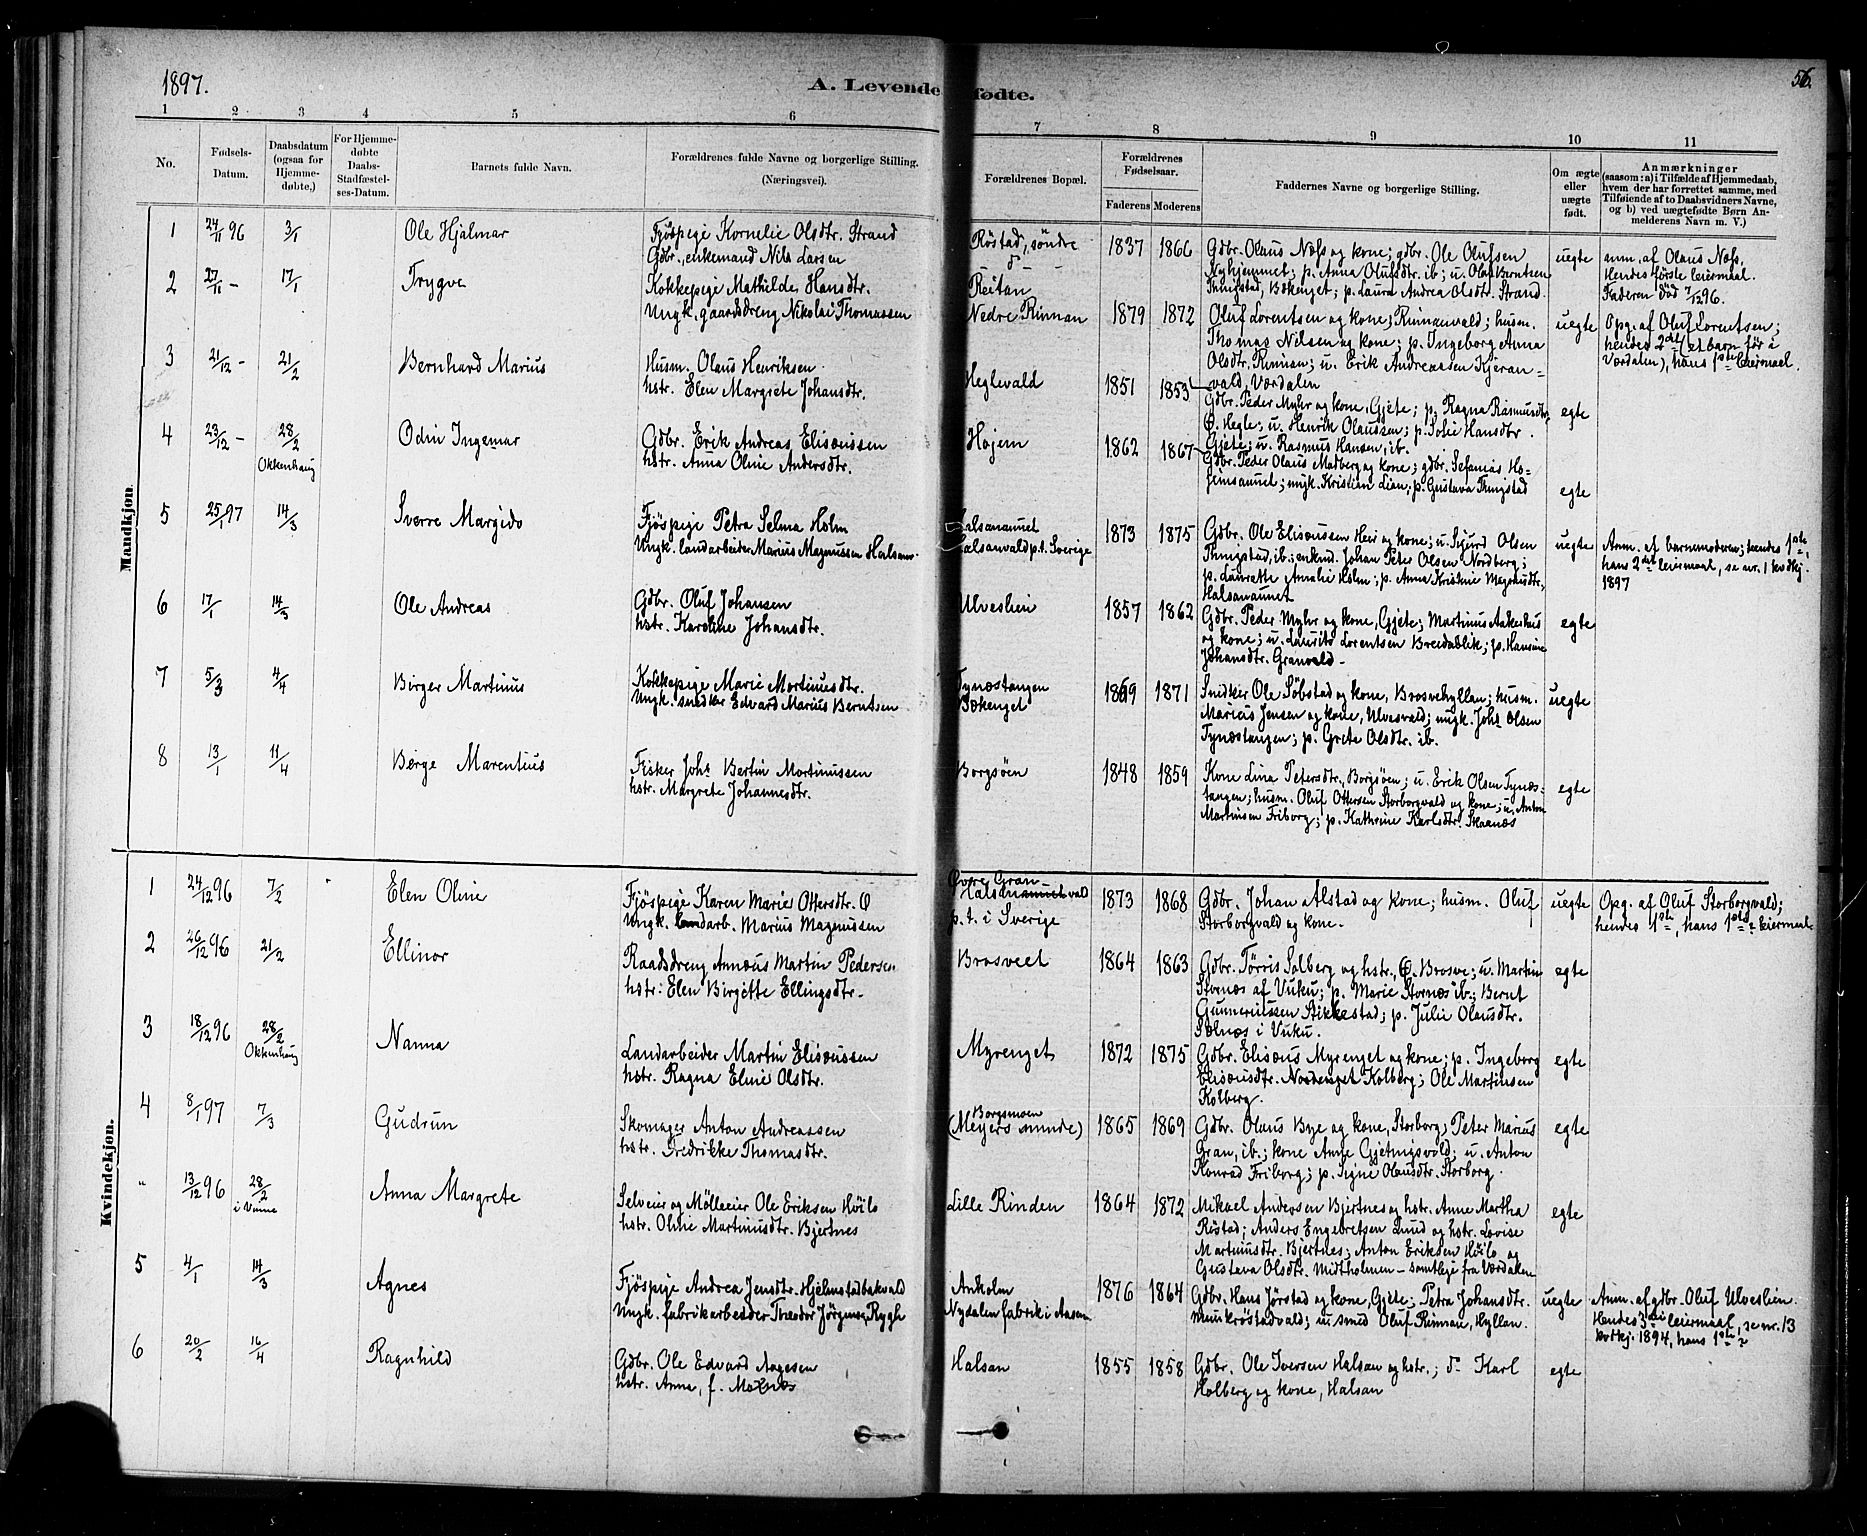 1897.
A. Levende fødte.
56.
1 2 3 4 5 6 7 8 9 10 11
No.
Fødsels-Datum.
Daabsdatum (ogsaa for Hjemmedøbte,)
For Hjemmedøbte Daabs-Stadfæstelses-Datum.
Barnets fulde Navn.
Forældrenes fulde Navne og borgerlige Stilling. (Næringsvei).
Forældrenes Bopæl.
Forældrenes Fødselsaar.
Faderens Moderens
Faddernes Navne og borgerlige Stilling.
Om ægte eller uægte født.
Anmærkninger (saasom: a) i Tilfælde af Hjemmedaab, hvem der har forrettet samme, med Tilføiende af to Daabsvidners Navne, og b) ved uægtefødte Børn Anmelderens Navn m. V.)
Mandkjøn.
1 24/11 96 3/1 Ole Hjalmar
Fjøspige Kornelie Olsdtr. Strand
Gdbr., enkemand Nils Larsen
Røstad, søndre
1837 1866
Gdbr. Olaus Næss og kone; gdbr. Ole Olufsen
Nyhjemmet; p. Anna Olufsdtr. ib; u. Olaf Berntsen
Thingstad, Bækenget; p. Laura Andrea Olsdtr. Strand.
uegte
anm. af Olaus Næss.
Hendes første leiermaal.
Faderen død 7/12 96.
2 27/11 - 17/1 Trygve
Kokkepige Mathilde Hansdtr.
Ungk. gaardsdreng Nikolai Thomassen
Reitan
Nedre Rinnan
1879 1872
Oluf Lorentsen og kone, Rinnanvald; husm.
Thomas Nilsen og kone; p. Ingeborg Anna
Olsdtr. Rinnan; u. Erik Andreassen Kjeran=
vald, Værdalen
uegte
Opg. af Oluf Lorentsen;
hendes 2det (et barn før i
Værdalen), hans 1ste leiermaal.
3 21/12 - 21/2 Bernhard Marius
Husm. Olaus Henriksen
hstr. Elen Margrete Johansdtr.
Heglevald
1851 1853
Gdbr. Peder Myhr og kone, Gjete; p. Ragna Rasmusdtr.
Ø. Hegle; u. Henrik Olaussen; p. Sofie Hansdtr.
Gjete; u. Rasmus Hansen, ib.
egte
4 23/12 - 28/2 Okkenhaug Odin Ingemar
Gdbr. Erik Andreas Elisæussen
hstr. Anna Oline Andersdtr.
Hojem
1862 1867
Gdbr. Peder Olaus Madberg og kone; gdbr. Sefanias Ho=
jemsaunet; ungk. Kristian Lian; p. Gustava Thingstad
egte
5 25/1 97 14/3 Sverre Margido
Fjøspige Petra Selma Holm
Ungk. landarbeider Marius Magnussen Halsan
Halsanaunet
Halsanvald p.t. Sverige
1873 1875
Gdbr. Ole Elisæussen Heir og kone; u. Sigurd Olsen
Thingstad, ib.; enkmd. Johan Peter Olsen Nordberg;
p. Lauretta Amalie Holm; p. Anna Kristine Magnusdtr.,
Halsanaunet
uegte
Anm. af barnemoderen; hendes 1ste,
hans 2det leiermaal, se nr. 1 kvdkj.
1897
6 17/1 14/3 Ole Andreas
Gdbr. Oluf Johansen
hstr. Karoline Johansdtr.
Ulveslien
1857 1862
Gdbr. Peder Myhr og kone, Gjete; Martinus Aakerhus
og kone; u. Laurits Lorentsen Breidablik; p. Hansine
Johansdtr. Granvald -
egte
7 5/3 4/4 Birger Martinus
Kokkepige Marie Martinusdtr.
Ungk. snedker Edvard Marius Berntsen
Tynæstangen
Bækenget
1869 1871
Snedker Ole Søbstad og kone, Brosvehyllan; husm.
Marius Jensen og kone, Ulvesvald; ungk. Johs Olsen
Tynæstangen; p. Grete Olsdtr. ib.
uegte
8 13/1 11/4 Børge Marentius
Fisker Johs Bertin Martinussen
hstr. Margrete Johannesdtr.
Borgsøen
1848 1859
Kone Lina Petersdtr., Borgsøen; u. Erik Olsen Tynæs=
tangen; husm. Oluf Ottersen Storborgvald og kone; u. Anton
Martinsen Friborg; p. Kathrine Karlsdtr. Skaanæs
egte
Kvindekjøn.
1 24/12 96 7/2 Elen Oline
Fjøspige Karen Marie Ottersdtr. Ø
Ungk. landarb. Marius Magnussen
Øvre Gran
Halsanaunet vald
p.t. i Sverige
1873 1868
Gdbr. Johan Alstad og kone; husm. Oluf
Storborgvald og kone.
uegte
Opg. af Oluf Storborgvald;
hendes 1ste, hans 1ste leiermaal.
2 26/12 96 21/2 Ellinor
Raadsdreng Annæus Martin Pedersen
hstr. Elen Birgitte Ellingsdtr.
Brosveet
1864 1863
Gdbr. Tørris Solberg og hstr., Ø. Brosve; u. Martin
Stornæs af Vuku; p. Marie Stornæs ib.; Bernt
Gunneriussen Stikkestad; p. Julie Olausdtr.
Sølnæs i Vuku.
egte
3 18/12 96 28/2 Okkenhaug Nanna
Landarbeider Martin Elisæussen
hstr. Ragna Eline Olsdtr.
Myrenget
1872 1875
Gdbr. Elisæus Myrenget og kone; p. Ingeborg
Elisæusdtr. Nordenget Kolberg; Ole Martinsen
Kolberg.
egte
4 8/1 97 7/3 Gudrun
Skomager Anton Andreassen
hstr. Fredrikke Thomasdtr.
Borgsmoen
(Meyers minde)
1865 1869
Gdbr. Olaus Bye og kone, Storborg; Peter Marius
Gran, ib.; kone Anne Gjetingsvold; u. Anton
Konrad Friborg; p. Signe Olausdtr. Storborg.
egte
" 13/12 96 28/2 i Vinne Anna Margrete
Selveier og Mølleeier Ole Eriksen Høilo
hstr. Oline Martinusdtr. Bjertnes
Lille Rinden
1864 1872
Mikael Andersen Bjertnes og hstr. Anne Martha
Ristad; Anders Engebretsen Lund og hstr. Lovise
Martinusdtr. Bjertnes; Anton Eriksen Høilo og
Gustava Olsdtr. Midtholmen - samtlige fra Værdalen
egte
5 4/1 14/3 Agnes
Fjøspige Andrea Jensdtr. Hjelmstadbakvald
Ungk. fabrikarbeider Theodor Jørgensen Rygh
Ankolm
Nydalen fabrik i Aasen
1876 1864
Gdbr. Hans Jørstad og kone, Gjete; Petra Johansdtr.
Munkrøstadvald; u. smed Oluf Rinnan, Hyllan.
uegte
Anm. af gdbr. Oluf Ulveslien.
Hendes 3die leiermaal, se nr. 13
kvdkj. 1894, hans 1ste
6 20/2 16/4 Ragnhild
Gdbr. Ole Edvard Aagesen
hstr. Anna, f. Moxnæs
Halsan
1855 1858
Gdbr. Ole Iversen Halsan og hstr.; do Karl
Holberg og kone, Halsan
egte